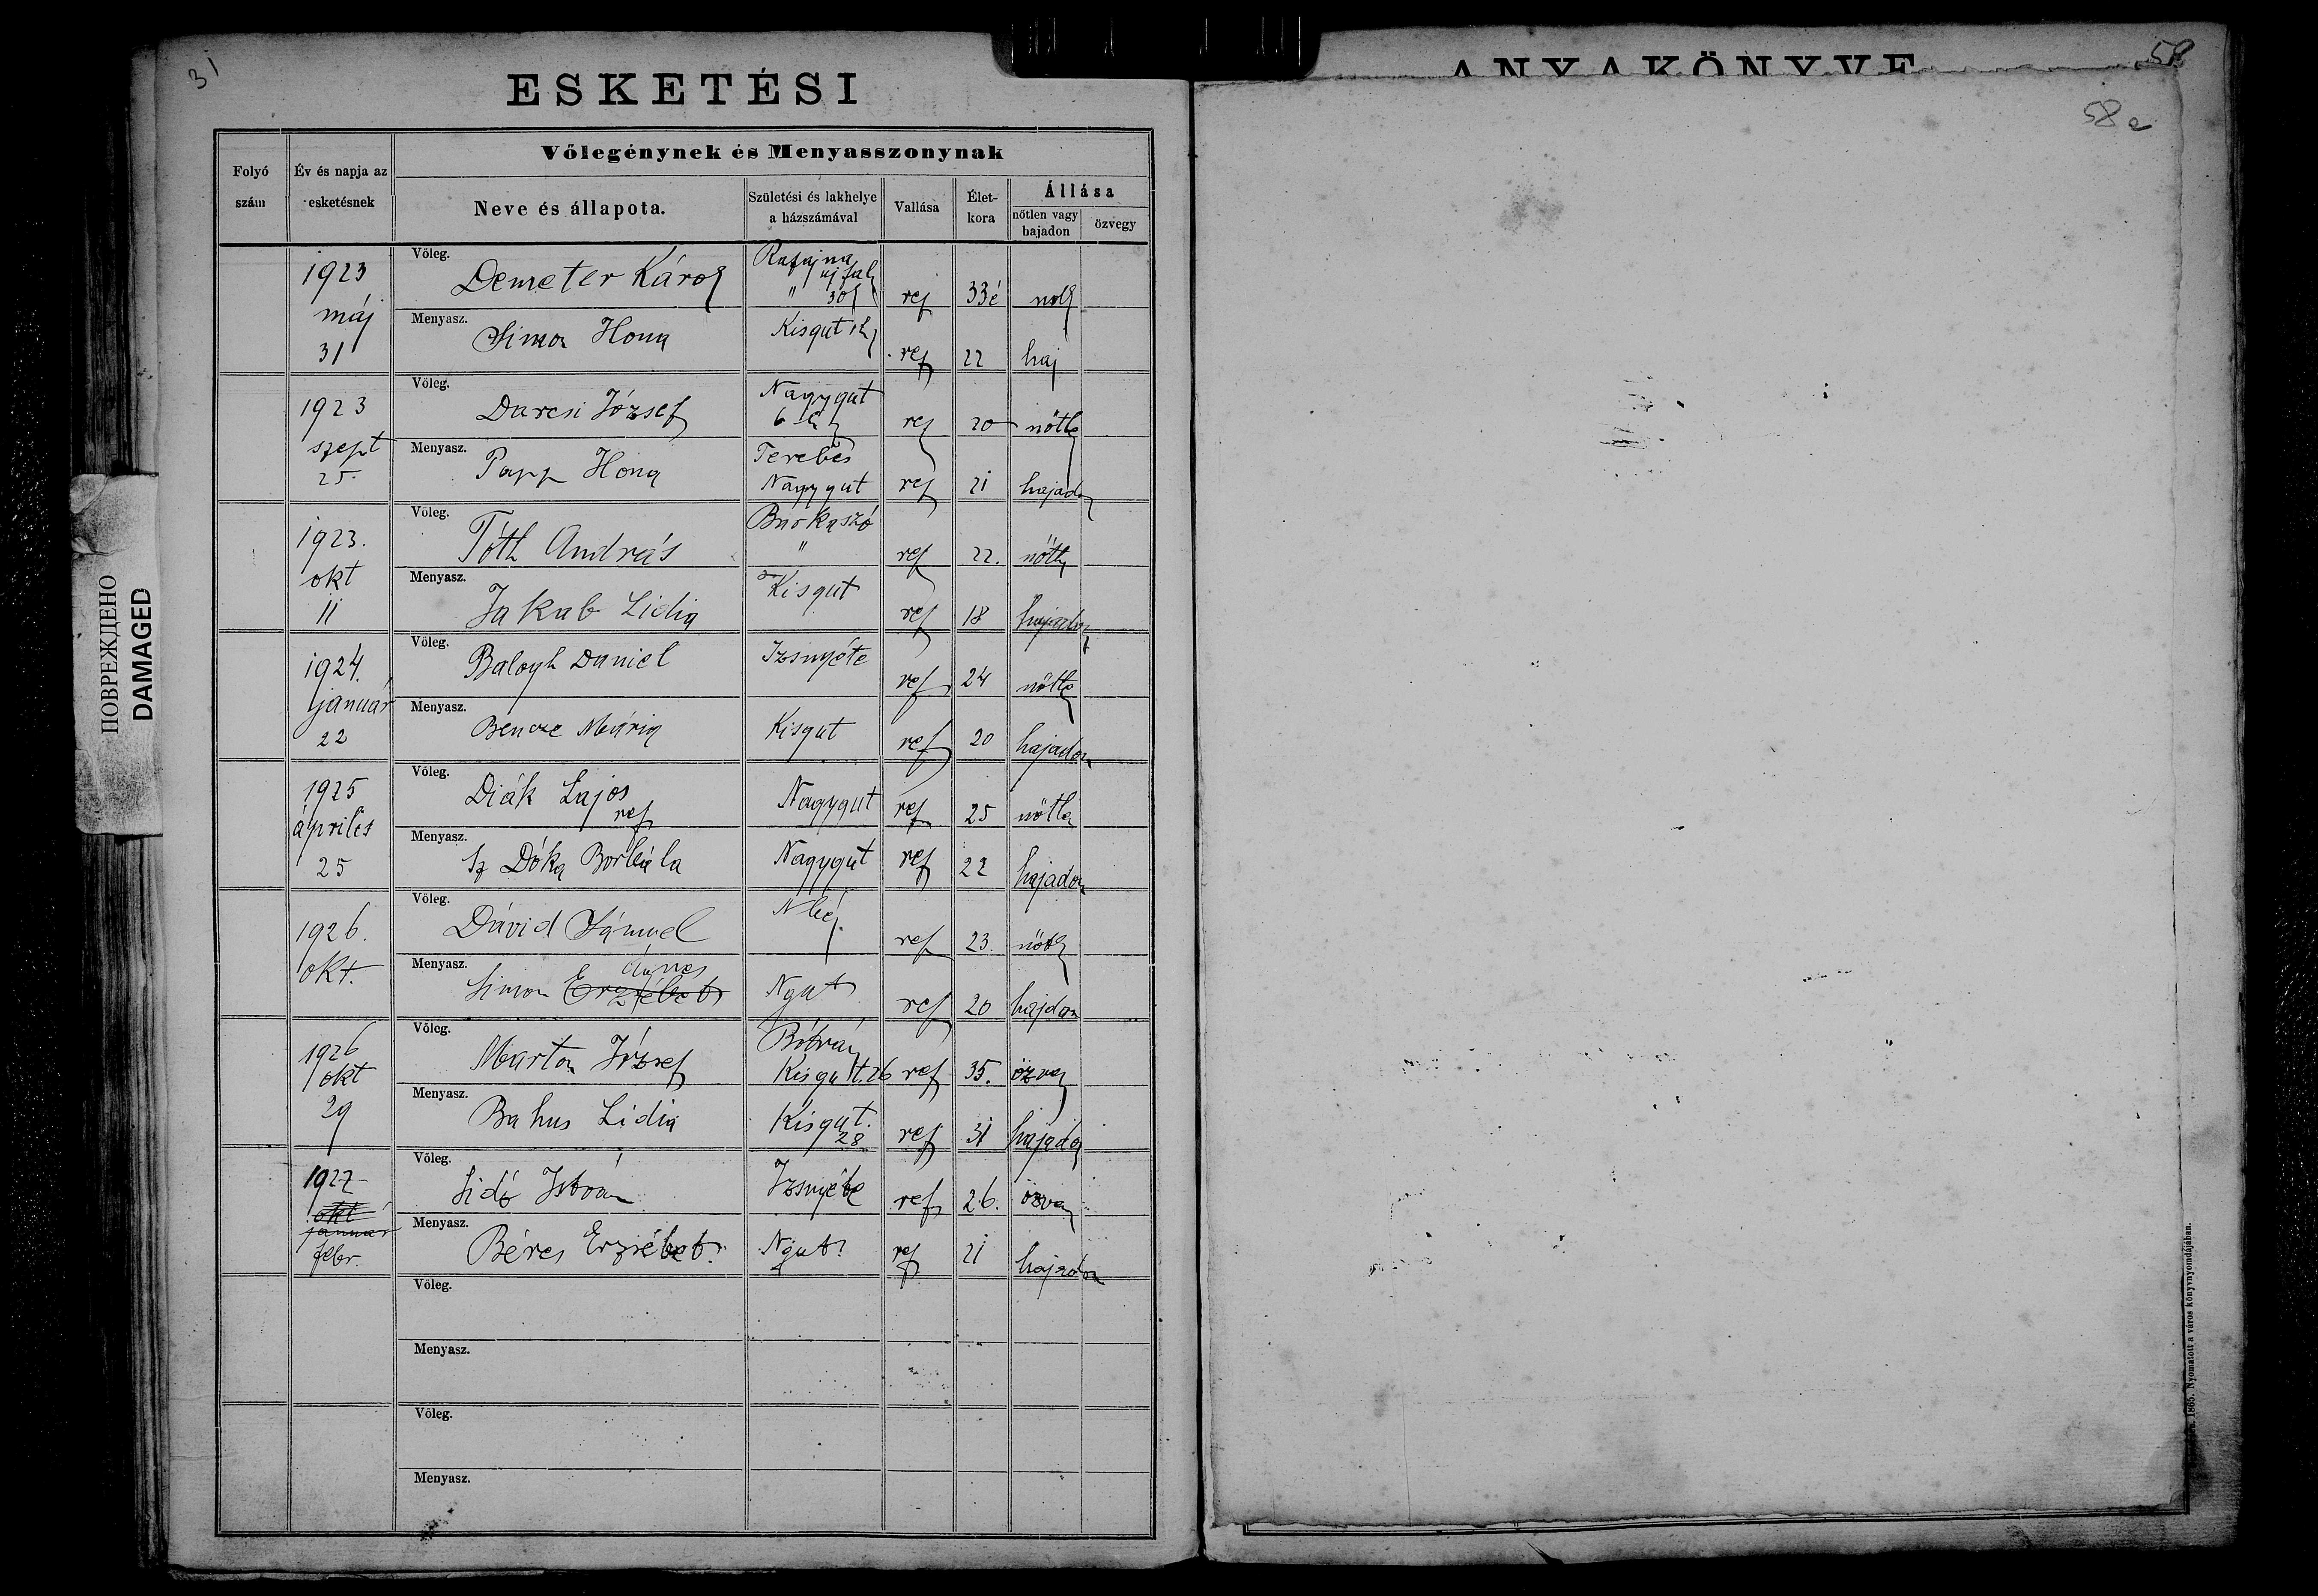 31
ESKETÉSI
Folyó szám
Év és napja az esketésnek
Vőlegénynek és Menyasszonynak
Neve és állapota.
Születési és lakhelye a házszámával
Vallása
Élet-kora
Állása
nőtlen vagy hajadon
özvegy
1923 máj 31
Vőleg. Demeter Károly ref 33 é
Menyasz. Simon Ilona Kisgut ref 22 haj
1923 szept 25.
Vőleg. Darcsi József Nagygut 6 ref 20 nőtlen
Menyasz. Papp Ilona Terebes Nagygut ref 21 hajadon
1923. okt 11
Vőleg. Tóth András " ref 22. nőtlen
Menyasz. Jakab Lidia Kisgut ref 18 hajadon
1924. január 22
Vőleg. Balogh Daniel Izsnyéte ref 24 nőtlen
Menyasz. Bencze Mária Kisgut ref 20 hajadon
1925 április 25
Vőleg. Diák Lajos ref Nagygut ref 25 nőtlen
Menyasz. Sz Dóka Borbála Nagygut ref 22 hajadon
1926. okt.
Vőleg. Dávid Sámuel ref 23. nőtl
Menyasz. Simon Erzsébet Ágnes Ngut ref 20 hajdon
1926 okt 29
Vőleg. Marton József Kisgut. 26 ref 35. özvegy
Menyasz. Bahus Lidia Kisgut. 28 ref 31 hajadon
1927 okt január febr.
Vőleg. Sidó István Izsnyéte ref 26. özvegy
Menyasz. Béres Erzsébet Ngut ref 21 hajadon
Vőleg.
Menyasz.
Vőleg.
Menyasz.
ПОВРЕЖДЕНО
DAMAGED
ANYAKÖNYVE
58
58 a
1865. Nyomatott a város könyvnyomdájában.